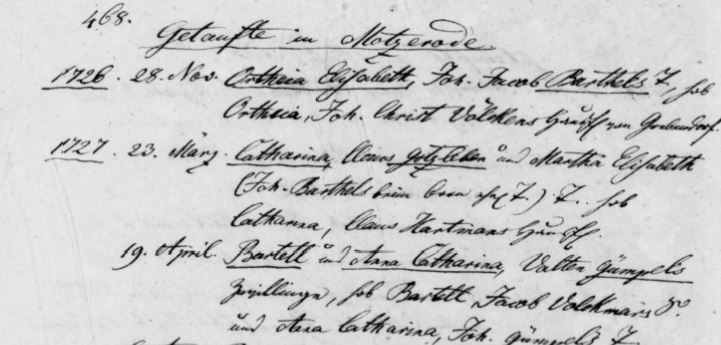 468.
Getaufte in Motzerode
1726. 28. Nov. Ortheia Elisabeth, Joh. Jacob Barthels T., hob
Ortheia, Joh. Christ Völckens Haußfr von
1727. 23. März. Catharina, Claus Gotzleben und Martha Elisabeth
(Joh. Barthels T.) T. hob
Catharina, Claus Hartmans Haußfr.
19. April. Bartell und Anna Catharina, Valten Gümpels
Zwillinge, hob Bartell, Jacob Volckmars
und Anna Catharina, Joh. Gümpels T.